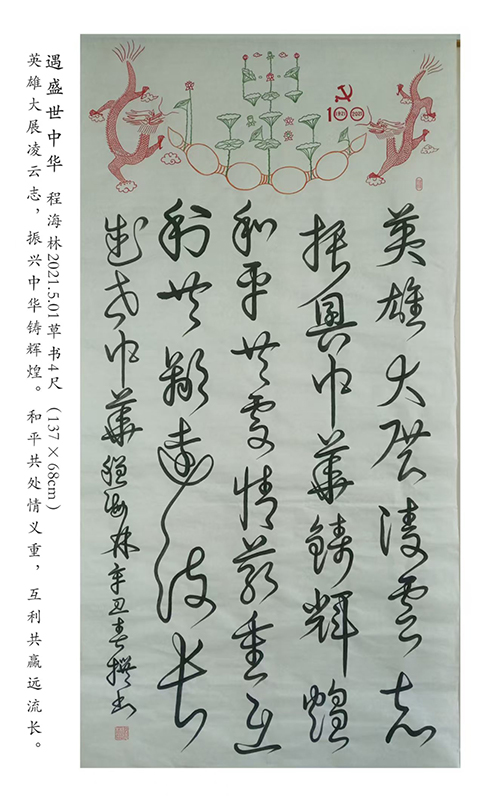 100
1921 2021
英雄大展凌雲志
振興中華鑄輝煌
和平共處情義重互
利共贏遠流长
盛世中華 程海林辛丑春撰书
遇盛世中华 程海林2021.5.01草书4尺（137×68cm）
英雄大展凌云志，振兴中华铸辉煌。和平共处情义重，互利共赢远流长。